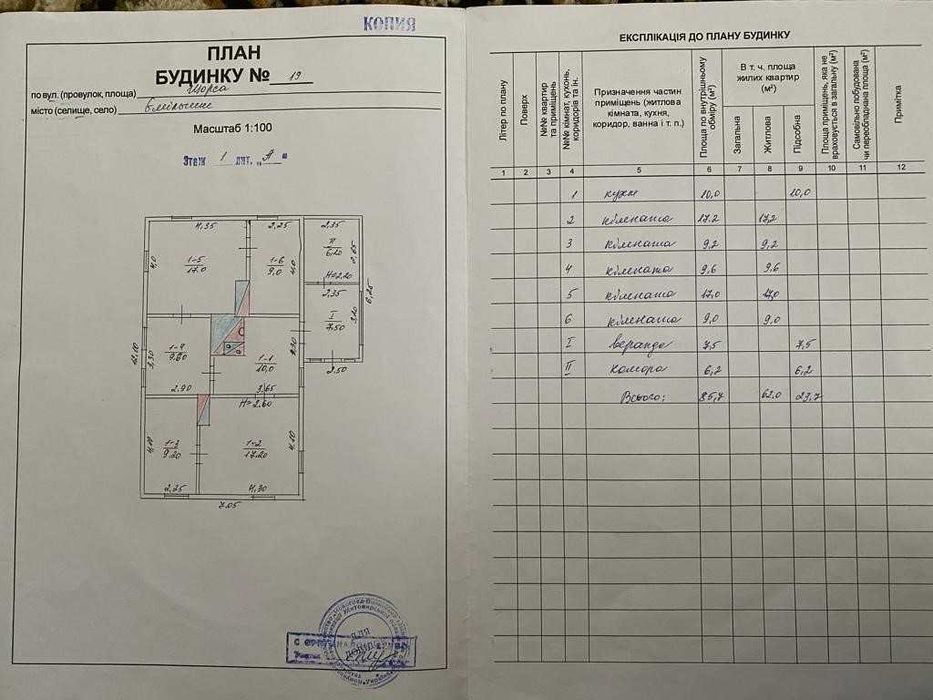 КОПИЯ
ПЛАН
БУДИНКУ № 19
по вул. (провулок, площа) Щорса
місто (селище, село)
Масштаб 1:100
Этаж 1 лит. „А"
4,35
2,25
2,35
II
6,20
2,65
1-5
17.0
1-6
9,0
4,0
4,0
H=2.20
2,35
I
7,50
3,20
6,25
2,50
12,10
3,30
1-4
9,60
2.90
1-1
10,0
3,65
H=2.60
4,10
1-3
9,20
1-2
17,20
4,10
2,25
4,30
7,05
ДЛЯ
ЕКСПЛІКАЦІЯ ДО ПЛАНУ БУДИНКУ
Літер по плану
Поверх
№№ квартир та приміщень
№№ кімнат, кухонь, коридорів та ін.
Призначення частин приміщень (житлова кімната, кухня, коридор, ванна і т. п.)
Площа по внутрішньому обміру (м²)
В т. ч. площа жилих квартир (м²)
Загальна
Житлова
Підсобна
Площа приміщень, яка не враховується в загальну (м²)
Самовільно побудована чи переобладнана площа (м²)
Примітка
1 2 3 4 5 6 7 8 9 10 11 12
1 кухн 10,0 10,0
2 кімната 17,2 17,2
3 кімната 9,2 9,2
4 кімната 9.6 9.6
5 кімната 17,0 17,0
6 кімната 9,0 9.0
I веранда 7,5 7,5
II комора 6,2 6,2
Всього: 85,7 62.0 23,7